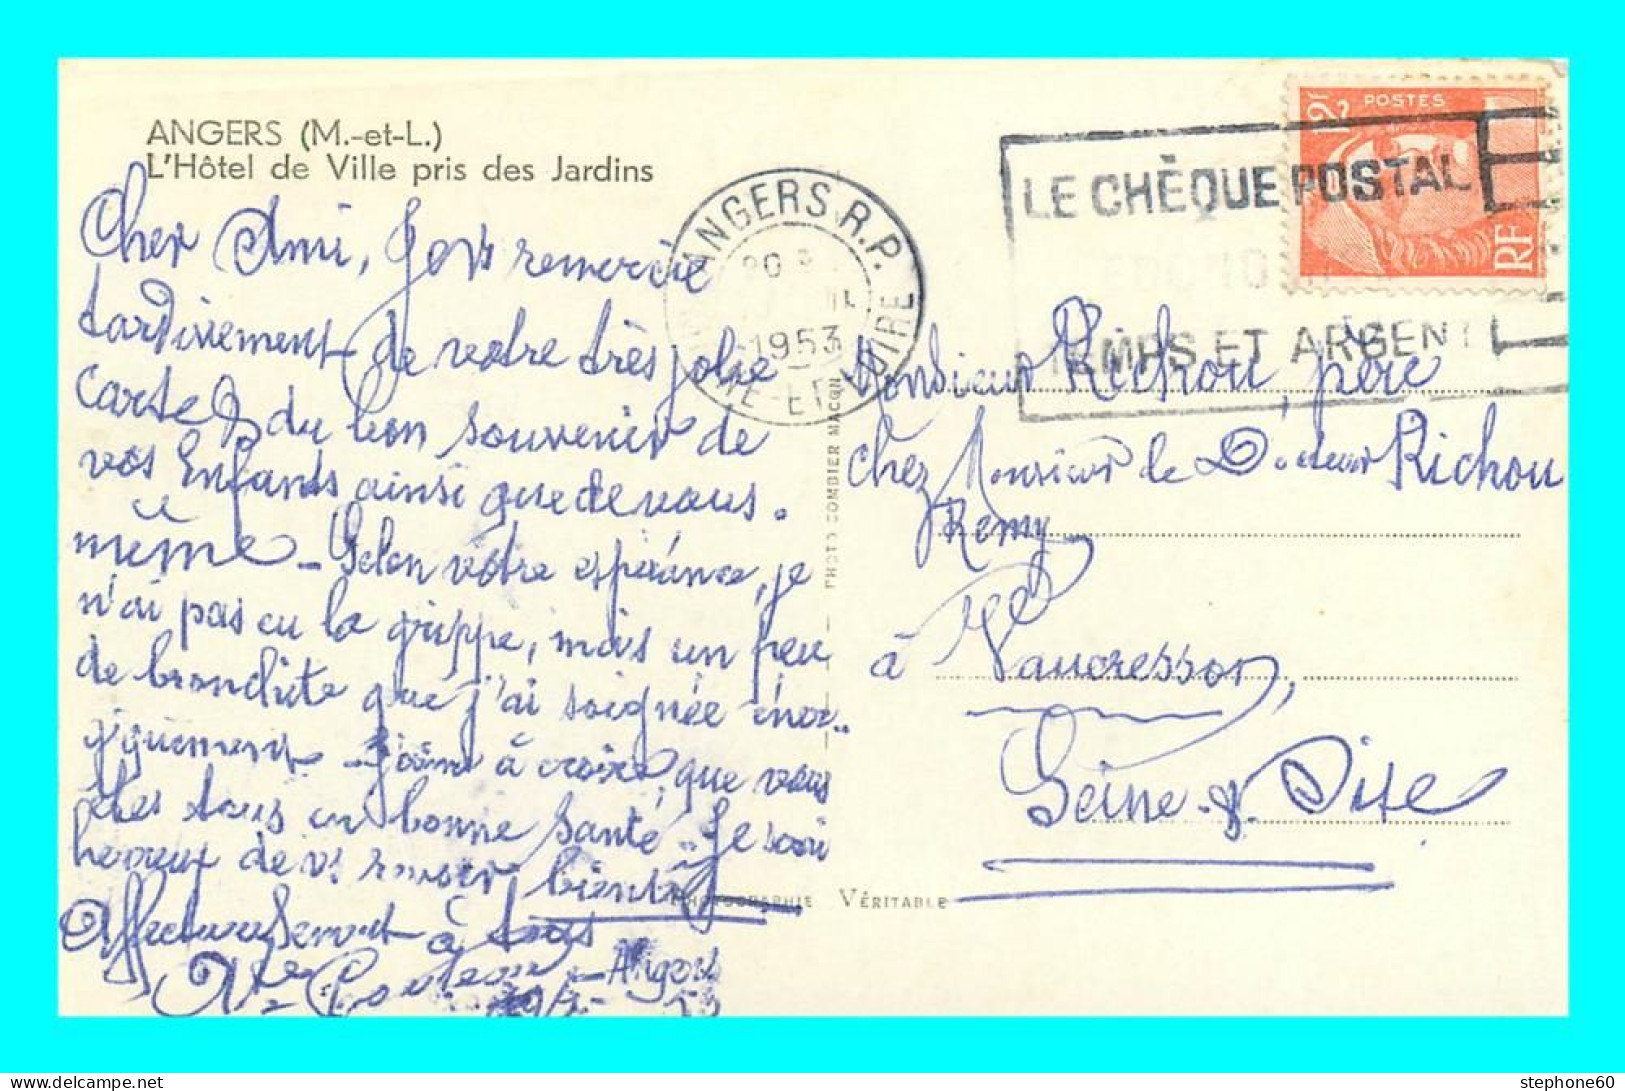 ANGERS (M.-et-L.)
L'Hôtel de Ville pris des Jardins
Cher Ami, Je vs remercie
tardivement de votre très jolie
carte & du bon souvenir de
vos Enfants ainsi que de vous-
même - Selon votre espérance, je
n'ai pas eu la grippe, mais un peu
de bronchite que j'ai soignée éner-
giquement - J'aime à croire, que vous
êtes tous en bonne santé - Je serai
heureux de vs bientôt
Affectueusement à tous
Angers
53
PHOTO COMBIER MACON
PHOTOGRAPHIE VÉRITABLE
ANGERS R.P.
MAINE-ET-LOIRE
1953
LE CHÈQUE POSTAL
TEMPS ET ARGENT
12F POSTES
RF
Monsieur Richou, père
chez Monsieur le Docteur Richou
Remy
à Vaucresson,
Seine-&-Oise
stephone60